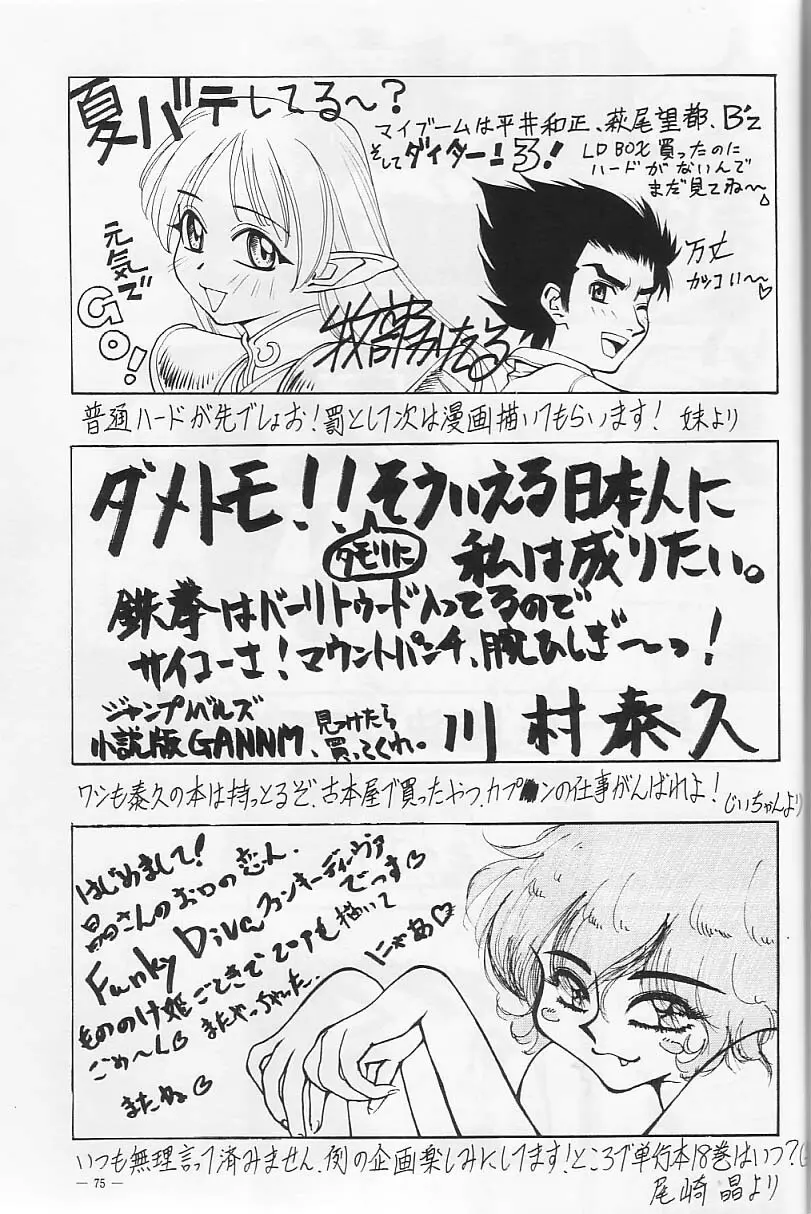 夏バテしてる～?
マイブームは平井和正、萩尾望都、B'z
そしてダイターン3!
LD BOX 買ったのに
ハードがないんで
まだ見てね～
万丈
カッコいい～♡
元気で
GO!
普通ハードが先でしょお!罰として次は漫画描いてもらいます! 妹より
ダメトモ!!そういえる日本人に
タモリに
私は成りたい。
鉄拳はバーリトゥード入ってるので
サイコーさ!マウントパンチ、腕ひしぎ～っ!
ジャンプノベルズ
小説版GANNM、見つけたら
買ってくれ。
川村泰久
ワシも泰久の本は持っとるぞ、古本屋で買ったやつ、カプ ンの仕事がんばれよ! じいちゃんより
はじめまして!
晶さんのお口の恋人、
Funky Diva ファンキーディヴァ
でっす♡
もののけ姫ごときで 描いて
ごめ～ん♡ またやっちゃった。
にゃあ♡
またね♡
いつも無理言って済みません、例の企画楽しみにしてます!ところで単行本18巻はいつ?
尾崎 晶より
— 75 —